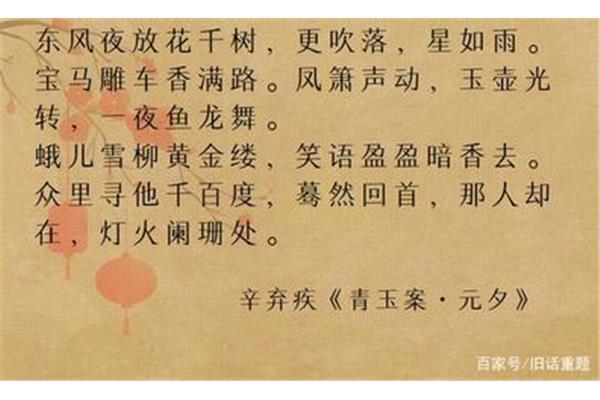 东风夜放花千树，更吹落，星如雨。
宝马雕车香满路。凤箫声动，玉壶光
转，一夜鱼龙舞。
蛾儿雪柳黄金缕，笑语盈盈暗香去。
众里寻他千百度，蓦然回首，那人却
在，灯火阑珊处。
辛弃疾《青玉案·元夕》
百家号/旧话重题